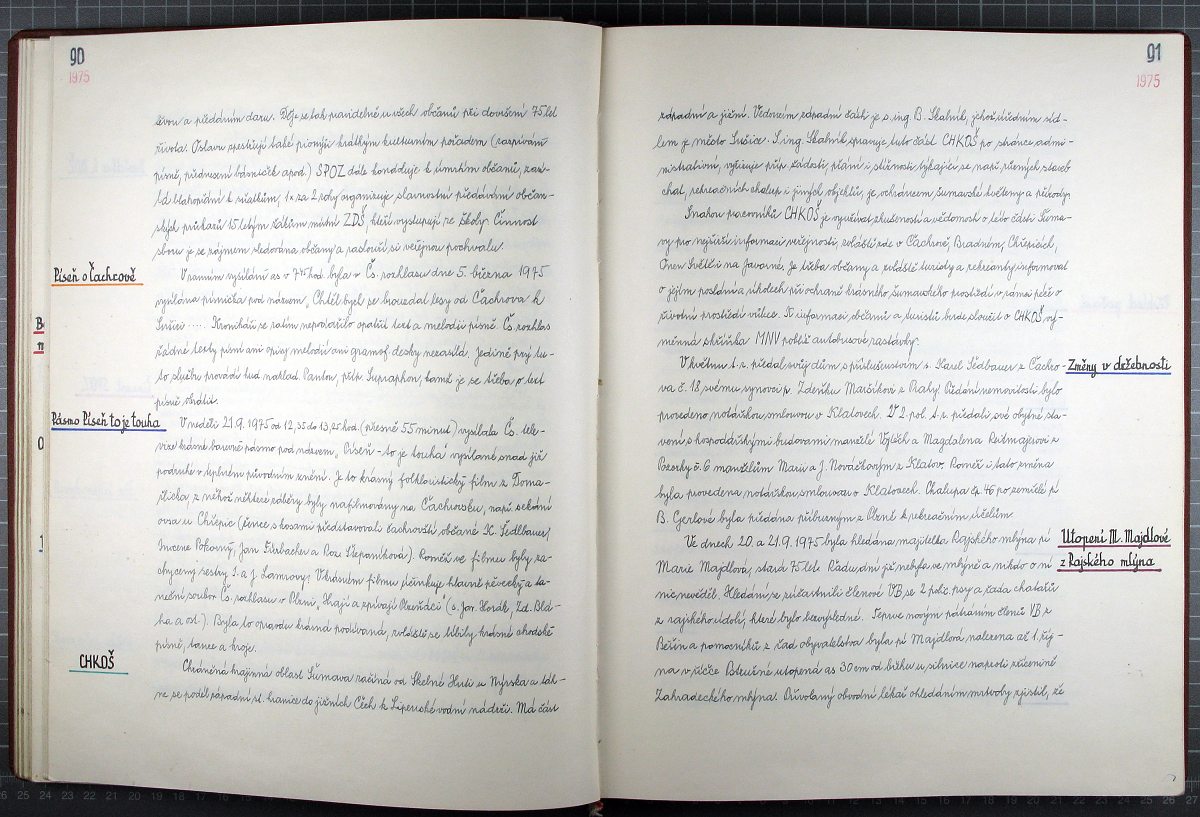 90
1975
ševou a předáním daru. Děje se tak pravidelně u všech občanů při dovršení 75 let
života. Oslavu zpestřují také pionýři krátkým kulturním pořadem (zazpívání
písně, přednesení básniček apod.) SPOZ dále kondoluje k úmrtím občanů, zasí-
lá blahopřání k sňatkům, 1x za 2 roky organizuje slavnostní předávání občan-
ských průkazů 15 letým žákům místní ZDŠ, kteří vystupují ze školy. Činnost
sboru je se zájmem sledována občany a zaslouží si veřejnou pochvalu.
Píseň o Čachrově
V ranním vysílání as v 7 45 hod. byla v Čs. rozhlasu dne 5. března 1975
vysílána písnička pod názvem, Chtěl bych se provedat lesy od Čachrova k
Sušici ..... Kronikáři se zatím nepodařilo opatřit text a melodii písně. Čs. rozhlas
žádné texty písní ani opisy melodií ani gramof. desky nezasílá. Jedině prý tu-
to službu provádí hud. naklad. Panton, příp. Supraphon, kamž je se třeba o text
písně obrátit.
Pásmo Píseň to je touha
V neděli 21.9.1975 od 12,35 do 13,25 hod. (přesně 55 minut) vysílala Čs. tele-
vize krásné barevné pásmo pod názvem, Píseň - to je touha" vysílané snad již
podruhé v úplném původním znění. Je to krásný folkloristický film z Doma-
žlicka, z něhož některé záběry byly nafilmovány na Čachrovsku, např. sekání
ovsa u Chřepic (žence s kosami představovali čachrovští občané K. Sedlbauer,
Vincenc Pokorný, Jan Fürbacher a Roz. Štěpaníková). Rovněž ve filmu byly za-
chyceny sestry I. a J. Lamrovy. V krásném filmu účinkuje hlavně pěvecký a ta-
neční soubor Čs. rozhlasu v Plzni „Hrají a zpívají Plzeňáci" (s. Jar. Horák, Zd. Blá-
ha a ost.). Byla to opravdu krásná podívaná, zvláště se líbily krásné chodské
písně, tance a kroje.
CHKOŠ
Chráněná krajinná oblast Šumava začíná od Skelné Huti u Nýrska a táh-
ne se podél západní st. hranice do jižních Čech k Lipenské vodní nádrži. Má část
91
1975
západní a jižní. Vedoucím západní části je s. ing. B. Skalník, jehož úředním síd-
lem je město Sušice. S. ing. Skalník spravuje tuto část CHKOŠ po stránce admi-
nistrativní, vyřizuje příp. žádosti, přání a stížnosti týkající se např. různých staveb
chat, rekreačních chalup i jiných objektů, je ochráncem šumavské květeny a přírody.
Snahou pracovníků CHKOŠ je využívat zkušeností a vědomostí o této části Šuma-
vy pro nejširší informaci veřejnosti, zvláště zde v Čachrově, Bradném, Chřepicích,
Onen Světě i na Javorné. Je třeba občany a zvláště turisty a rekreanty informovat
o jejím poslání a úkolech při ochraně krásného šumavského prostředí v rámci péče o
životní prostředí vůbec. K informaci občanů a turistů bude sloužit o CHKOŠ vý-
měnná skřínka MNV poblíž autobusové zastávky.
Změny v držebnosti
V květnu t.r. předal svůj dům s příslušenstvím s. Karel Sedlbauer z Čachro-
va č. 18 svému synovci p. Zdeňku Maršíkovi z Prahy. Předání nemovitosti bylo
provedeno notářskou smlouvou v Klatovech. V 2. pol. t.r. předali své obytné sta-
vení s hospodářskými budovami manželé Vojtěch a Magdalena Rutmajerovi z
Pozorky č. 6 manželům Marii a J. Nováčkovým z Klatov. Rovněž i tato změna
byla provedena notářskou smlouvou v Klatovech. Chalupa čp. 46 po zemřelé pí
B. Gerlové byla předána příbuzným z Plzně k rekreačním účelům.
Utopení M. Majdlové
z Rajského mlýna
Ve dnech 20. a 21.9.1975 byla hledána majitelka Rajského mlýna pí
Marie Majdlová, stará 75 let. Řadu dní již nebyla ve mlýně a nikdo o ní
nic nevěděl. Hledání se zúčastnili členové VB se 2 polic. psy a řada chatařů
z rajského údolí, které bylo bezvýsledné. Teprve novým pátráním členů VB z
Běšin a pomocníků z řad obyvatelstva byla pí Majdlová nalezena až 1. říj-
na v říčce Bstružné utopená as 30 cm od břehu u silnice naproti zřícenině
Zahradeckého mlýna. Přivolaný obvodní lékař ohledáním mrtvoly zjistil, že